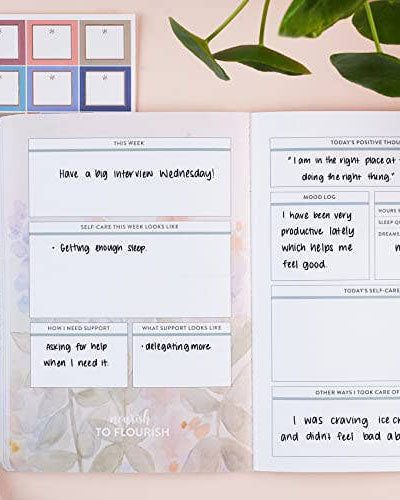 THIS WEEK
Have a big interview Wednesday!
SELF-CARE THIS WEEK LOOKS LIKE
• Getting enough sleep.
HOW I NEED SUPPORT
Asking for help
when I need it.
WHAT SUPPORT LOOKS LIKE
• delegating more
nourish
TO FLOURISH
TODAY'S POSITIVE
"I am in the right place at
doing the right thing."
MOOD LOG
I have been very
productive lately
which helps me
feel good.
HOURS
SLEEP
DREAMS
TODAY'S SELF-CARE
OTHER WAYS I TOOK CARE OF
I was craving
and didn't feel bad